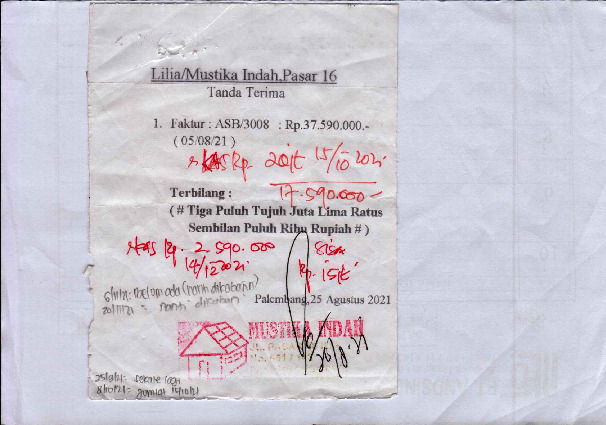 Lilia/Mustika Indah,Pasar 16
Tanda Terima
1. Faktur : ASB/3008 : Rp.37.590.000.-
( 05/08/21 )
Rp. 20jt 15/10 2021
17.590.000-
Terbilang :
( # Tiga Puluh Tujuh Juta Lima Ratus
Sembilan Puluh Ribu Rupiah # )
Rp. 2.590.000 Sisa
14/12 2021 Rp. 15jt
6/11/21: Belum ada (nanti dikabarin)
20/11/21 = nanti dikabari
Palembang,25 Agustus 2021
MUSTIKA INDAH
26/8-21
8/10/21= Jumat 15/10/21